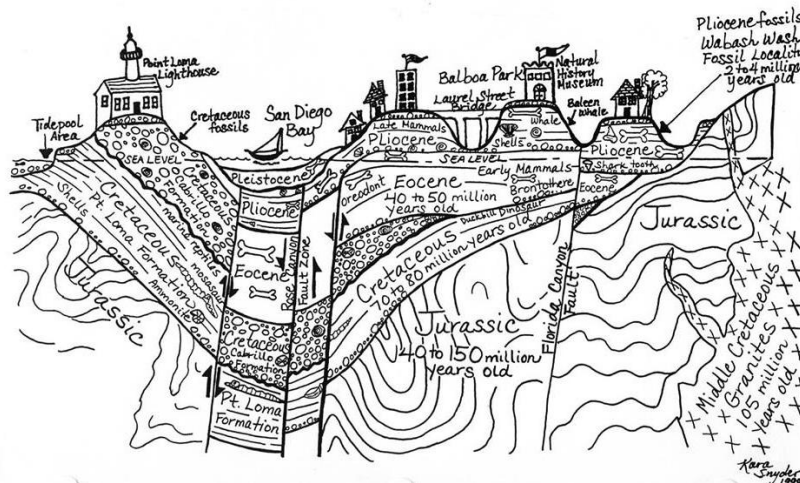 Point Loma
Lighthouse
Tidepool
Area
Cretaceous
fossils
San Diego
Bay
Balboa Park
Laurel Street
Bridge
Natural
History
Museum
Baleen
Whale
Pliocene fossils
Wabash Wash
Fossil Locality
2 to 4 million
years old
SEA LEVEL
Cretaceous
Cabrillo
Formation
marine reptiles
Shells
Cretaceous
Pt. Loma Formation
mosasaur
Ammonite
Jurassic
Pleistocene
Pliocene
Eocene
Cretaceous
Cabrillo
Formation
Pt. Loma
Formation
Rose Canyon
Fault Zone
Late Mammals
Pliocene
oreodont
SEA LEVEL
Eocene
40 to 50 million
years old
Early Mammals
Brontothere
Duckbill Dinosaur
Cretaceous
70 to 80 million years old
Jurassic
140 to 150 million
years old
Whale
Shells
Florida Canyon
Fault
Pliocene
Shark tooth
Eocene
Jurassic
Middle Cretaceous
Granites
105 million
years old
Kara
Snyder